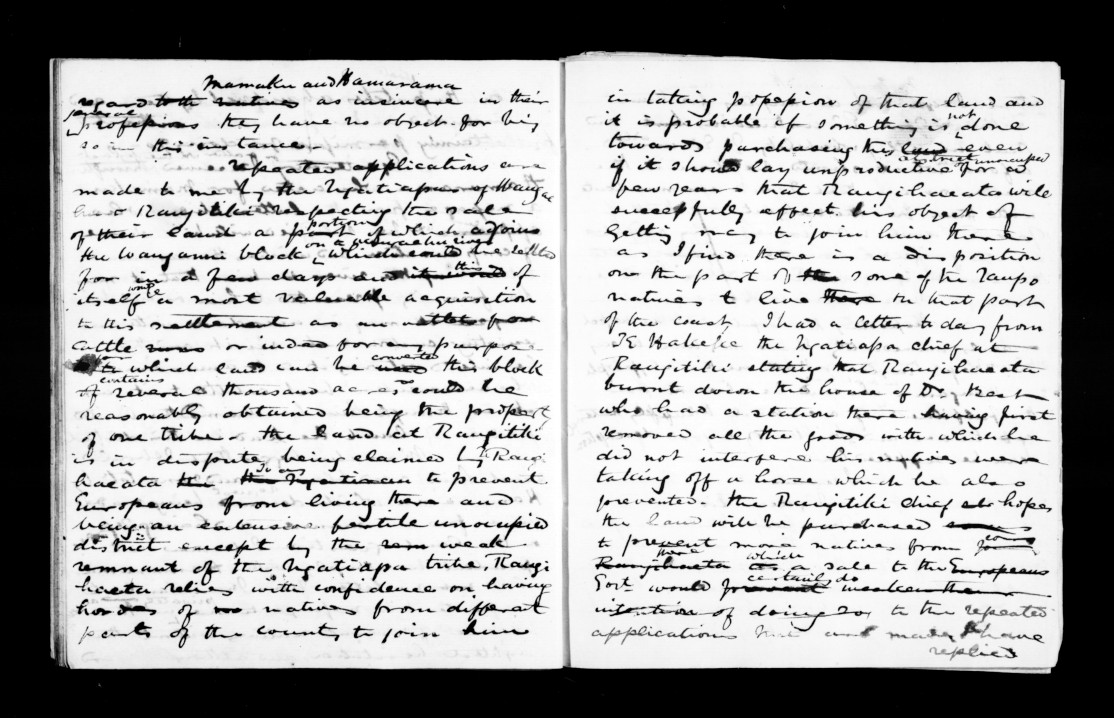 Mamaku and Hamarama
regard to the natives as insincere in their
professions they have no object for being
so in this instance.
repeated applications are
made to me by the Ngatiapa of Wanga
Rangitiki respecting the sale
of their land a part portion of which adjoins
the Wanganui block on a which could be settled
for in a few days and of
itself a most valuable acquisition
to this settlement as an outlet for
cattle runs or indeed for any purpose
to which land can be used converted this block
contains of several thousand acres could be
reasonably obtained being the property
of one tribe. the land at Rangitiki
is in dispute being claimed by Rangi
haeata the to prevent
Europeans from living there and
being an extensive fertile unoccupied
district except by the rem weak
remnant of the Ngatiapa tribe, Rangi
haeata relies with confidence on having
hordes of natives from different
parts of the country to join him
in taking possession of that land and
it is probable if something is not done
towards purchasing this land even
if it should lay unproductive for a
few years that Rangihaeata will
successfully effect his object of
getting many to join him there
as I find there is a disposition
on the part of the some of the Taupo
natives to live there on that part
of the coast. I had a letter to day from
the Ngatiapa chief at
Rangitiki stating that Rangihaeata
burnt down the house of Dr. Best
who had a station there having first
removed all the goods with which he
did not interfere his natives were
taking off a horse which he also
prevented. the Rangitiki chief also hopes
the land will be purchased
to prevent more natives from joining
Rangihaeata there which a sale to the Europeans
Govt would prevent certainly do weaken their
intention of doing so, to the repeated
applications that are made I have
replied